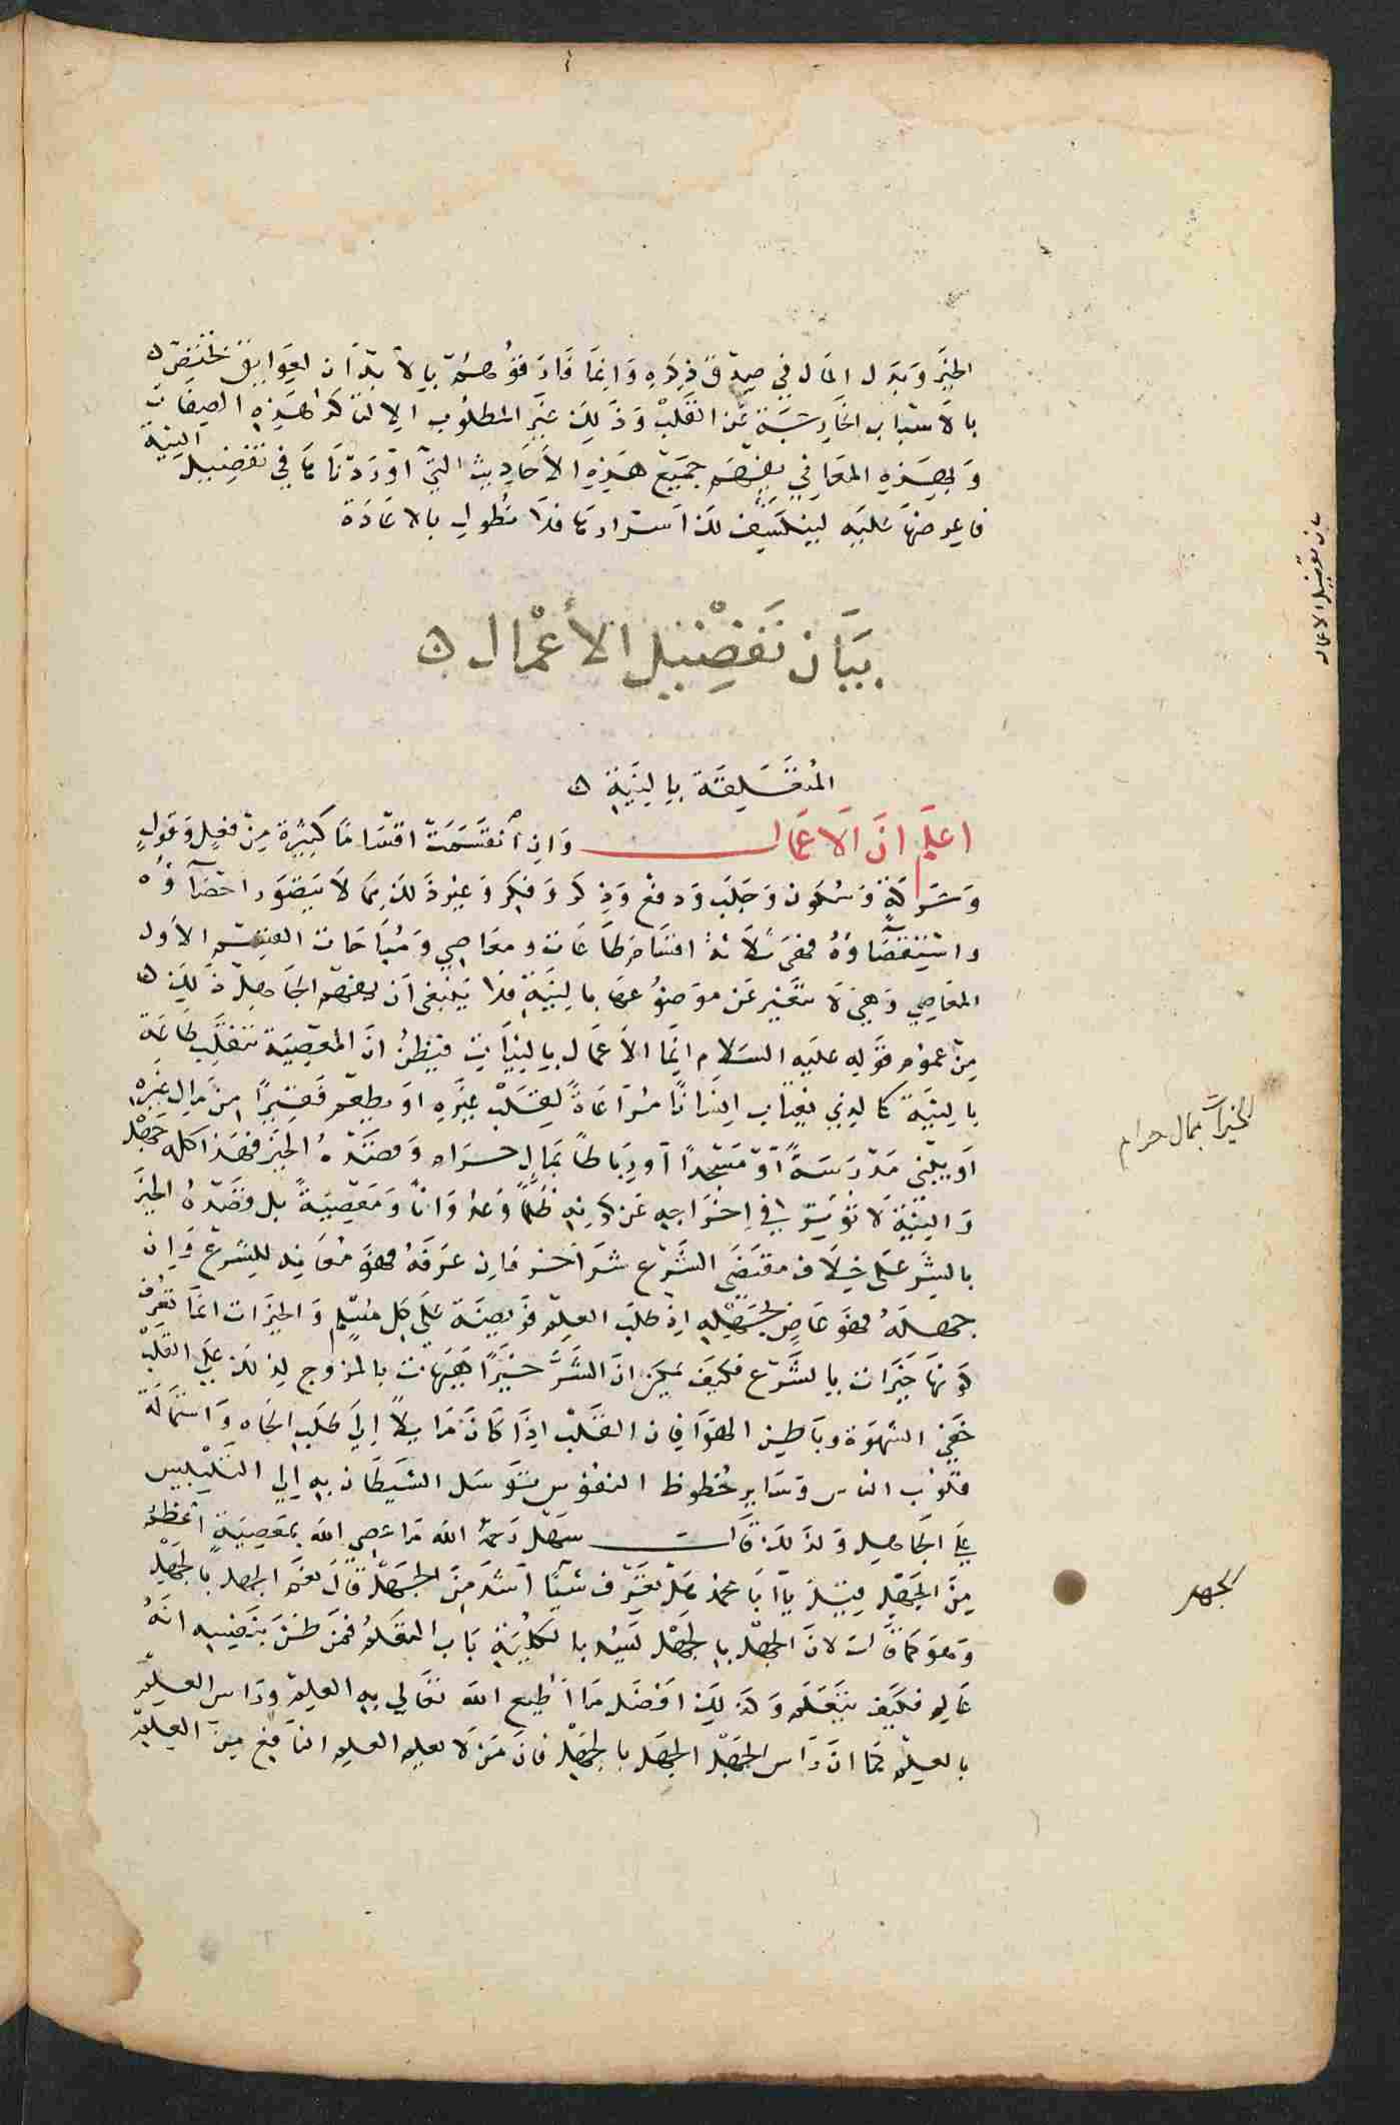 الخير وبذل المال في صدق ذكره وانما فارقوهم بالابدان لعوايق تختص
بالاسباب الخارجة عن القلب وذلك غير المطلوب الا لتاكد هذه الصفات
وبهذه المعاني يفهم جميع هذه الاحاديث التي اوردناها في تفضيل النية
فاعرضها عليه لينكشف لك اسرارها فلا نطول بالاعادة
بيان تفضيل الأعمال
المتعلقة بالنية
اعلم ان الاعمال وان انقسمت اقساما كثيرة من فعل وقول
وحركة وسكون وجلب ودفع وذكر وفكر وغير ذلك مما لا يتصور احصاؤه
واستقصاؤه فهي ثلاثة اقسام طاعات ومعاصي ومباحات القسم الاول
المعاصي وهي لا تتغير عن موضوعها بالنية فلا ينبغي ان يفهم الجاهل ذلك
من عموم قوله عليه السلام انما الاعمال بالنيات فيظن ان المعصية تنقلب طاعة
بالنية كالذي يغتاب انسانا مراعاة لقلب غيره او يطعم فقيرا من مال غيره
او يبني مدرسة او مسجدا او رباطا بمال حرام وقصده الخير فهذا كله جهل
والنية لا تؤثر في اخراجه عن كونه ظلما وعدوانا ومعصية بل قصده الخير
بالشر على خلاف مقتضى الشرع شر اخر فان عرفه فهو معاند للشرع وان
جهله فهو عاص بجهله اذ طلب العلم فريضة على كل مسلم والخيرات انما تعرف
كونها خيرات بالشرع فكيف يمكن ان الشر خيرا هيهات بل المروج لذلك على القلب
خفي الشهوة وباطن الهوا فان القلب اذا كان مايلا الى طلب الجاه واستمالة
قلوب الناس وساير حظوظ النفوس توسل الشيطان به الى التلبيس
على الجاهل ولذلك قال سهل رحمه الله ما عصي الله بمعصية اعظم
من الجهل قيل يا ابا محمد هل تعرف شيئا اشد من الجهل قال نعم الجهل بالجهل
وهو كما قال لان الجهل بالجهل يسد بالكلية باب التعلم فمن ظن بنفسه انه
عالم فكيف يتعلم وكذلك افضل ما اطيع الله تعالى به العلم وراس العلم
بالعلم كما ان راس الجهل الجهل بالجهل فان من لا يعلم العلم النافع من العلم
بيان تفضيل الاعمال
الخيرات بمال حرام
الجهل